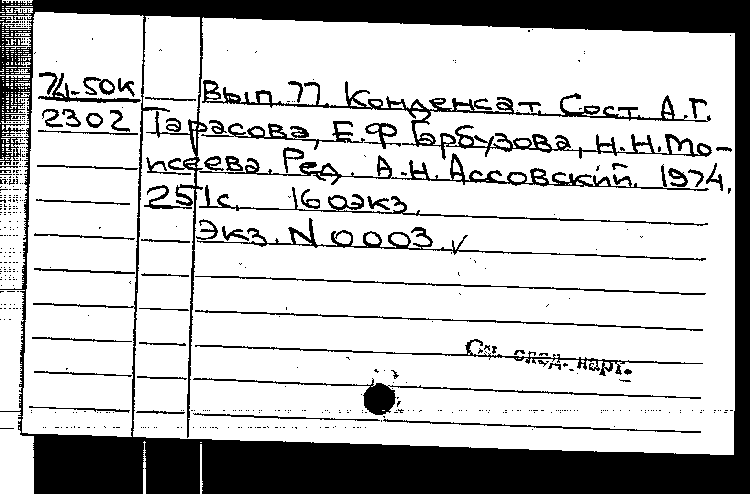 74-50к Вып. 77. Конденсат. Сост. А.Г.
2302 Тарасова, Е.Ф Гарбузова, Н.Н.Мо-
исеева. Ред. А.Н.Ассовский. 1974.
251с. 160экз.
Экз. N 0003.
См. след. карт.